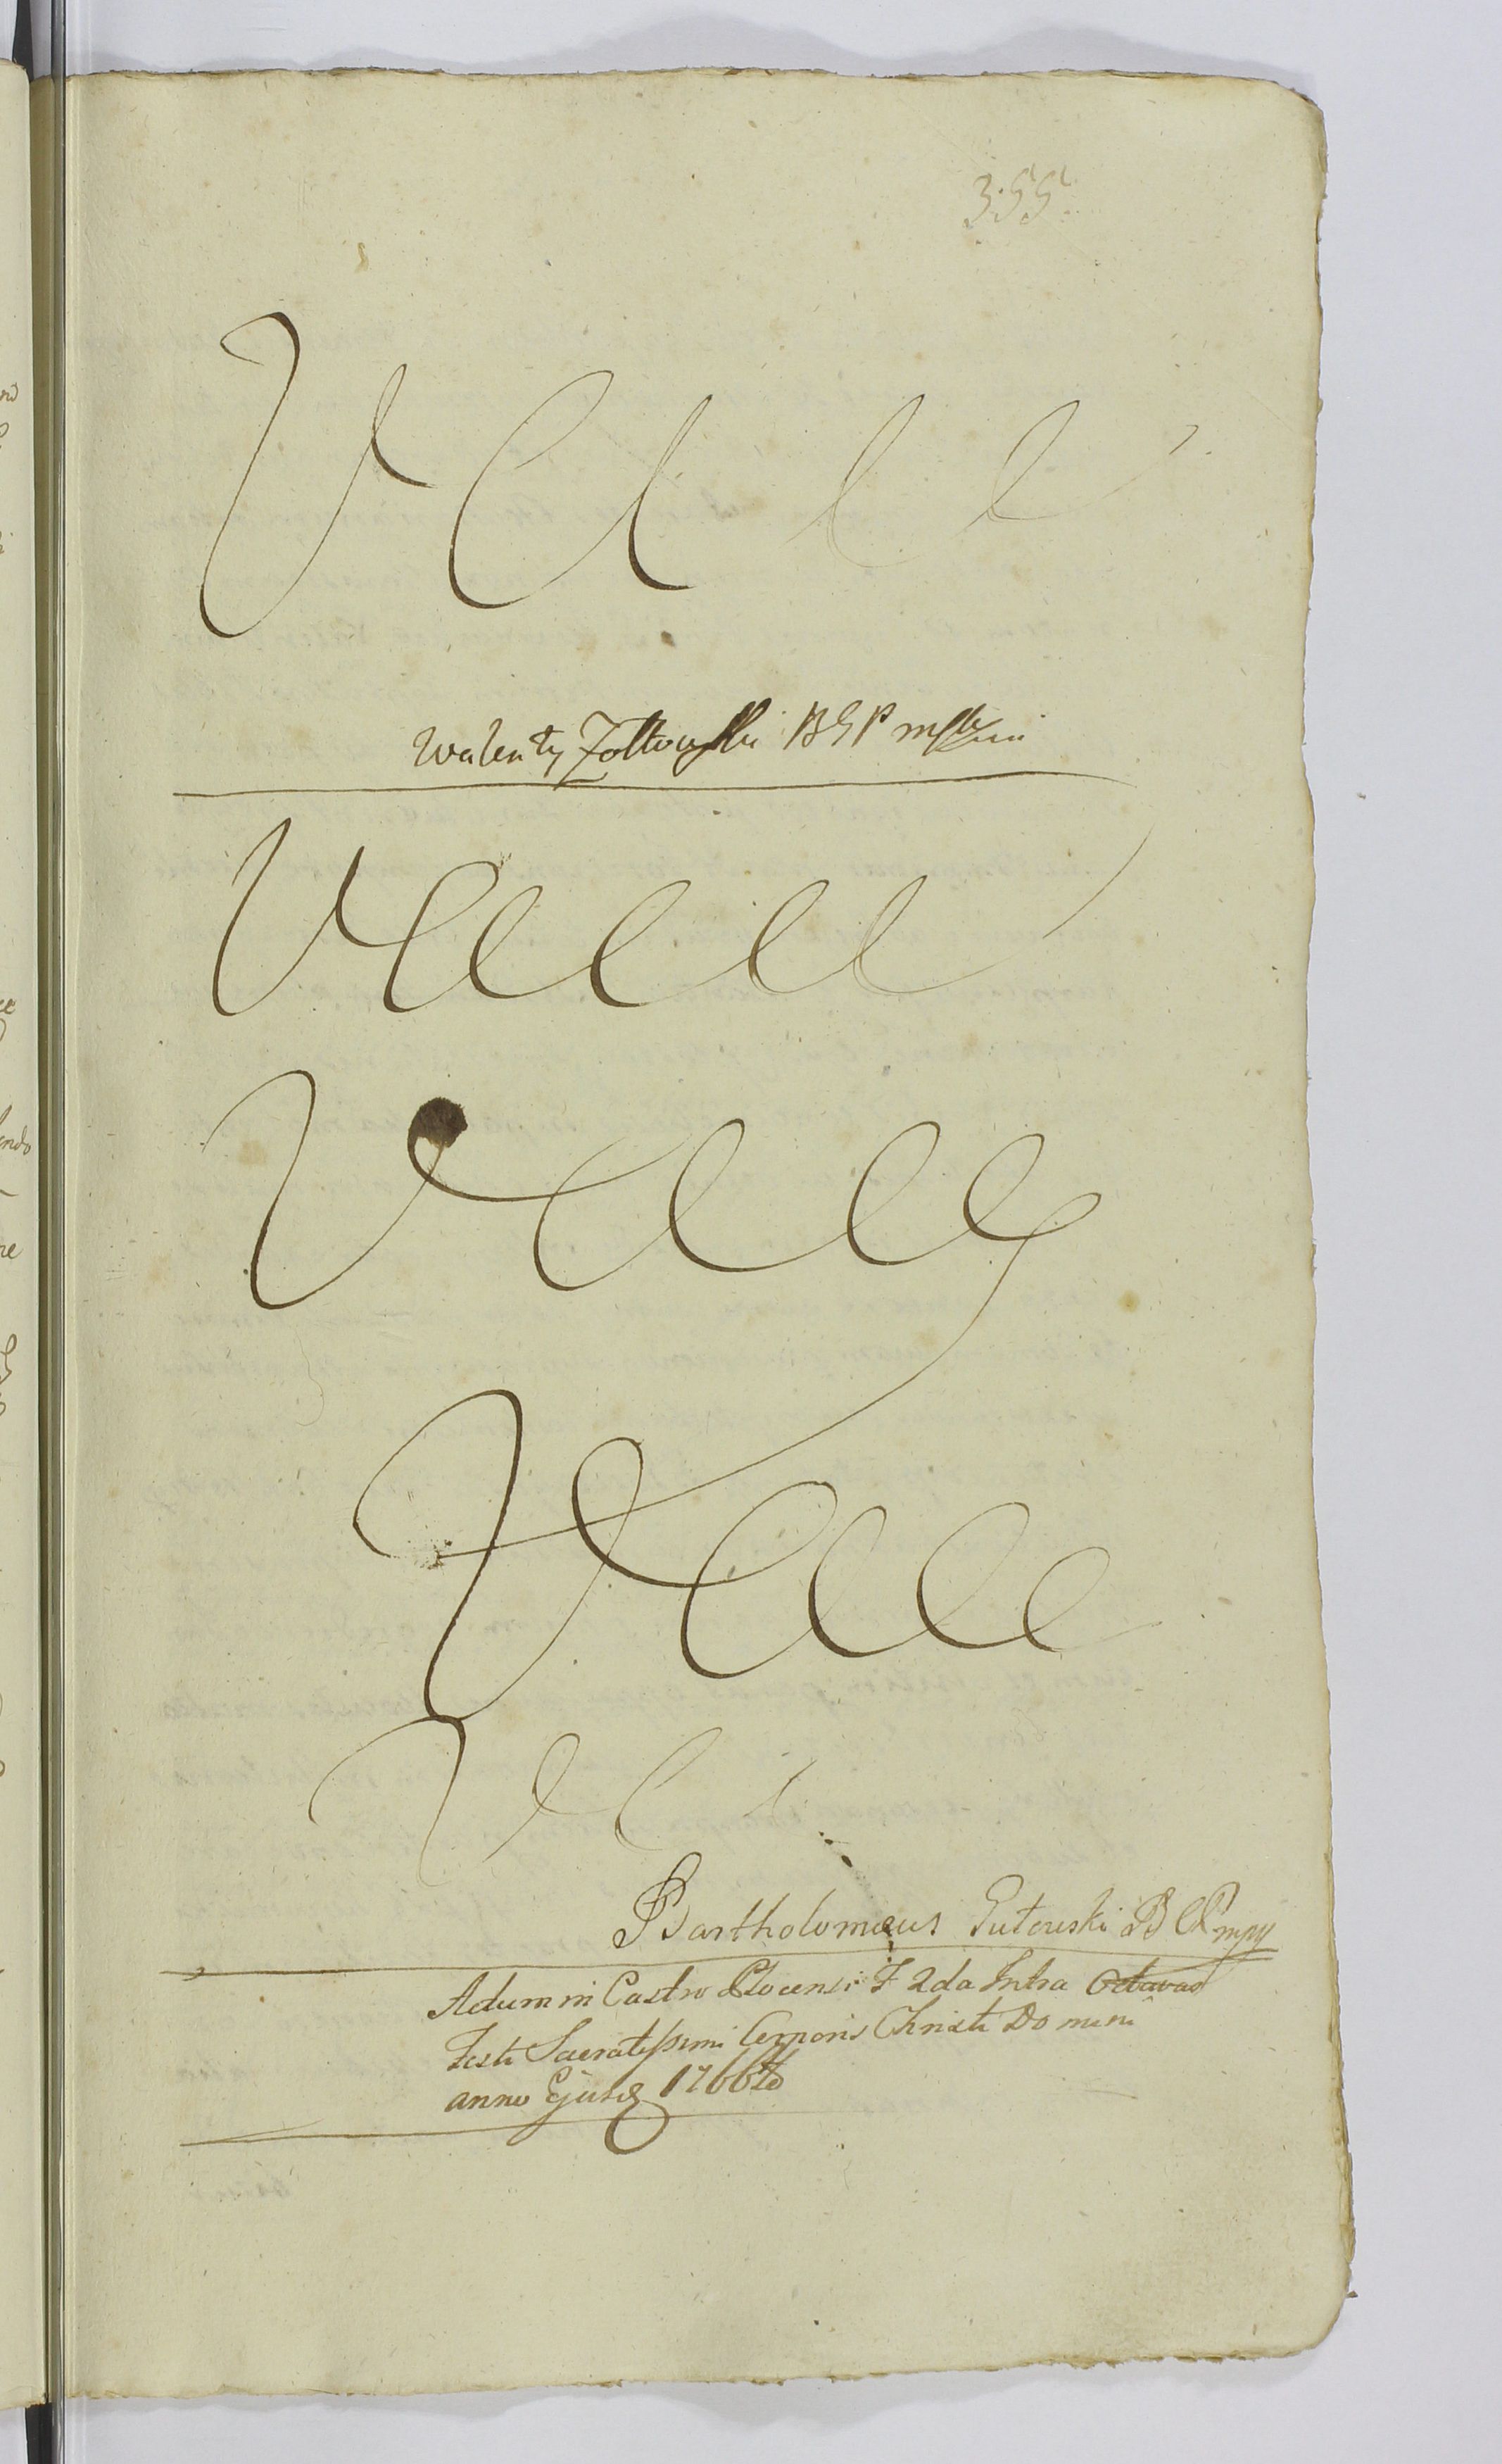 355
Walenty Zołtowski BGP mpp
Bartholomæus Gutowski BGP mpp
Actum in Castro Plocensi F 2da Intra Octavas
Festi Sacratissimi Corporis Christi Domini
anno Ejusd 1766to